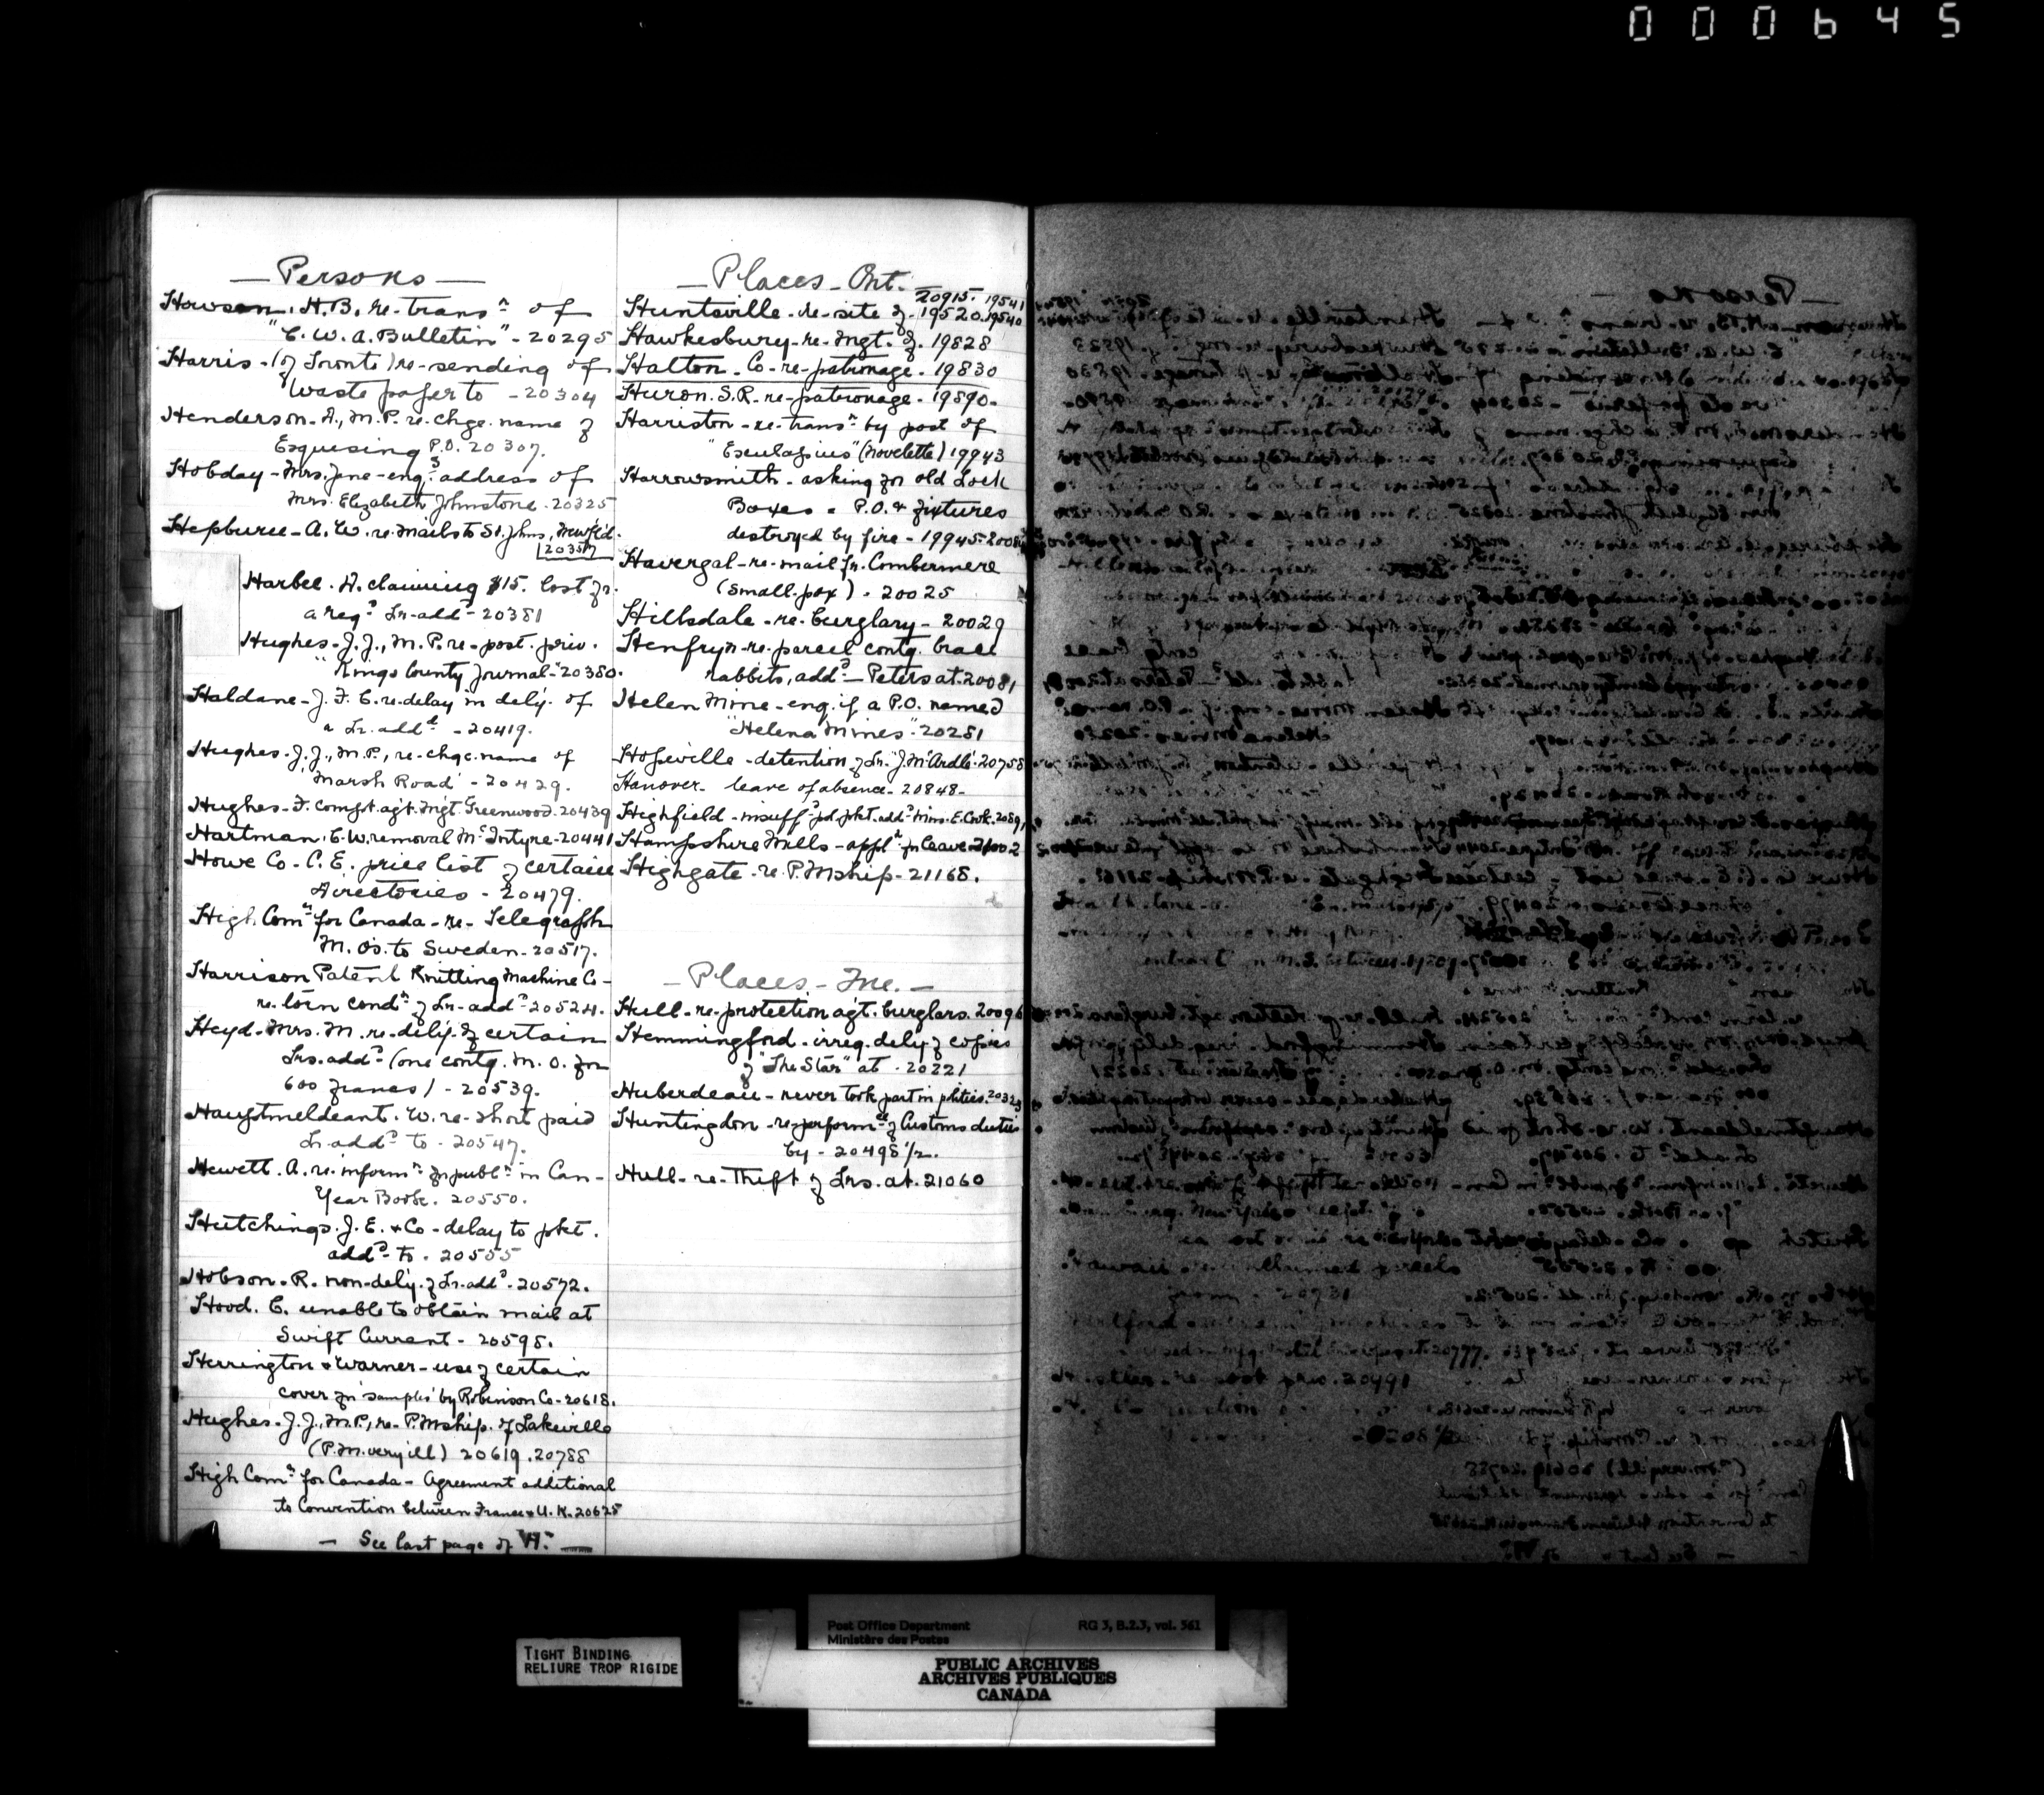 000645
— Persons —
Howson, H.B. re-transn of
"C.W.A. Bulletin" - 20295
Harris - (of Toronto) re-sending of
waste paper to - 20304
Henderson - D., M.P. re-chge. name of
Esquesing P.O. 20307.
Hobday - Mrs. Jane - enq. address of
Mrs. Elizabeth Johnstone - 20325
Hepburn - A. W. re. mails to St. Johns, Newfld.
20357
Harbec. A. claiming $15. lost fr.
a regd Lr. addd - 20381
Hughes - J. J., M.P. re - post. priv.
"Kings County Journal" - 20380.
Haldane - J. F. C. re. delay in dely. of
a Lr. addd - 20419.
Hughes - J. J., M.P., re - chge. name of
'Marsh Road' - 20429.
Hughes - F. compt. agt. Mgt. Greenwood - 20439
Hartman, C. W. removal McIntyre - 20441
Howe Co - C. E. price list of certain
Directories - 20479.
High Comr for Canada - re - Telegraph
M. Os. to Sweden - 20517.
Harrison Patent Knitting Machine Co -
re. torn condn of Lr. addd - 20524.
Heyd - Mrs. M. re. dely. of certain
Lrs. addd (one contg. M. O. for
600 francs) - 20539.
W. re - short paid
Lr. addd to - 20547.
Hewett. A. re. informn for publn in Can -
Year Book. 20550.
Hutchings. J. E. & Co - delay to pkt.
addd to. 20555
Hobson. R. non-dely. of Lr. addd - 20572.
Hood. C. unable to obtain mail at
Swift Current - 20598.
Herrington & Warner - use of certain
cover for 'samples' by Robinson Co - 20618.
Hughes - J. J., M.P., re - P.Mship. of Lakeville
(P.M. very ill) 20619. 20788
High Comr for Canada - Agreement additional
to Convention between France & U. K. 20625
— See last page of "H". —
— Places - Ont.
20915. 19541
Huntsville - re-site of - 19520. 19540
Hawkesbury - re - Mgt. of. 19828
Halton. Co - re - patronage. 19830
Huron. S.R. - re - patronage - 19890.
Harriston - re - transn by post of
"Esculapius" (Novelette) 19943
Harrowsmith - asking for old Lock
Boxes & P.O. & fixtures
destroyed by fire - 19945.
Havergal - re - mail fr. Combermere
(Small-pox) - 20025
Hillsdale - re - burglary - 20029
Henfryn - re - parcel contg. brace
rabbits, addd — Peters at. 20081
Helen Mine - enq. if a P.O. named
"Helena Mines" - 20281
Hopeville - detention of Lr. J. McArdle - 20758
Hanover - leave of absence - 20848 -
Highfield - insuffd pd. pkt. addd Miss. E. Cook.
Hampshire Mills - appln for leave 21002
Highgate - re. P.Mship - 21168.
— Places -
Hull - re - protection agt. burglars. 20096
Hemmingford - irreg. dely. of copies
of "The Star" at - 20221
Huberdeau - never took part in politics.
Huntingdon - re - performce of Customs duties
by - 20498 1/2.
Hull - re - Theft of Lrs. at. 21060
TIGHT BINDING
RELIURE TROP RIGIDE
Post Office Department RG 3, B.2.3, vol. 561
Ministère des Postes
PUBLIC ARCHIVES
ARCHIVES PUBLIQUES
CANADA